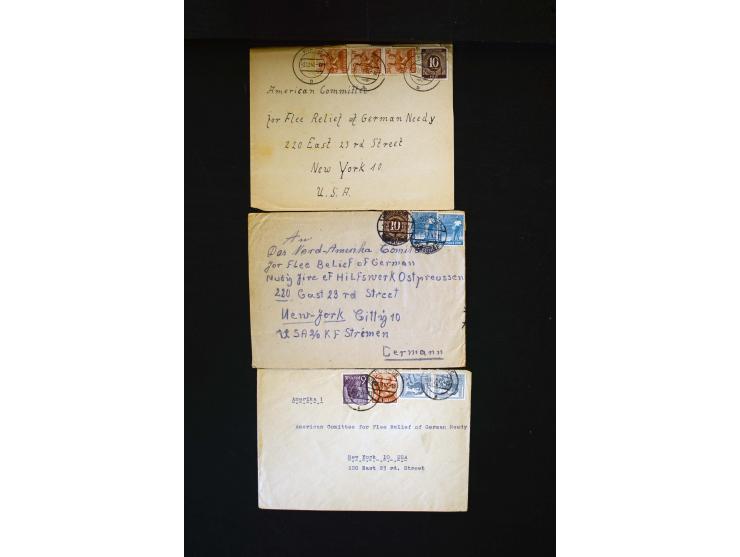 10
American Committee
for Flee Relief of German Needy
220 East 23 rd Street
New York 10
U. S. A
10
An
Das Nord-Amerika Comite
for Flee Belief of German
Nudij fire et Hilfswerk Ostpreussen
220 East 23 rd Street
New-York Cittÿ 10
USA % KF Strömen
Germann
Amerika !
American Comittee for Flee Relief of German Needy
New York 10, USA
220 East 23 rd. Street